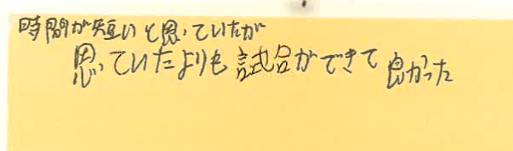 時間が短いと思っていたが
思っていたよりも試合ができて良かった